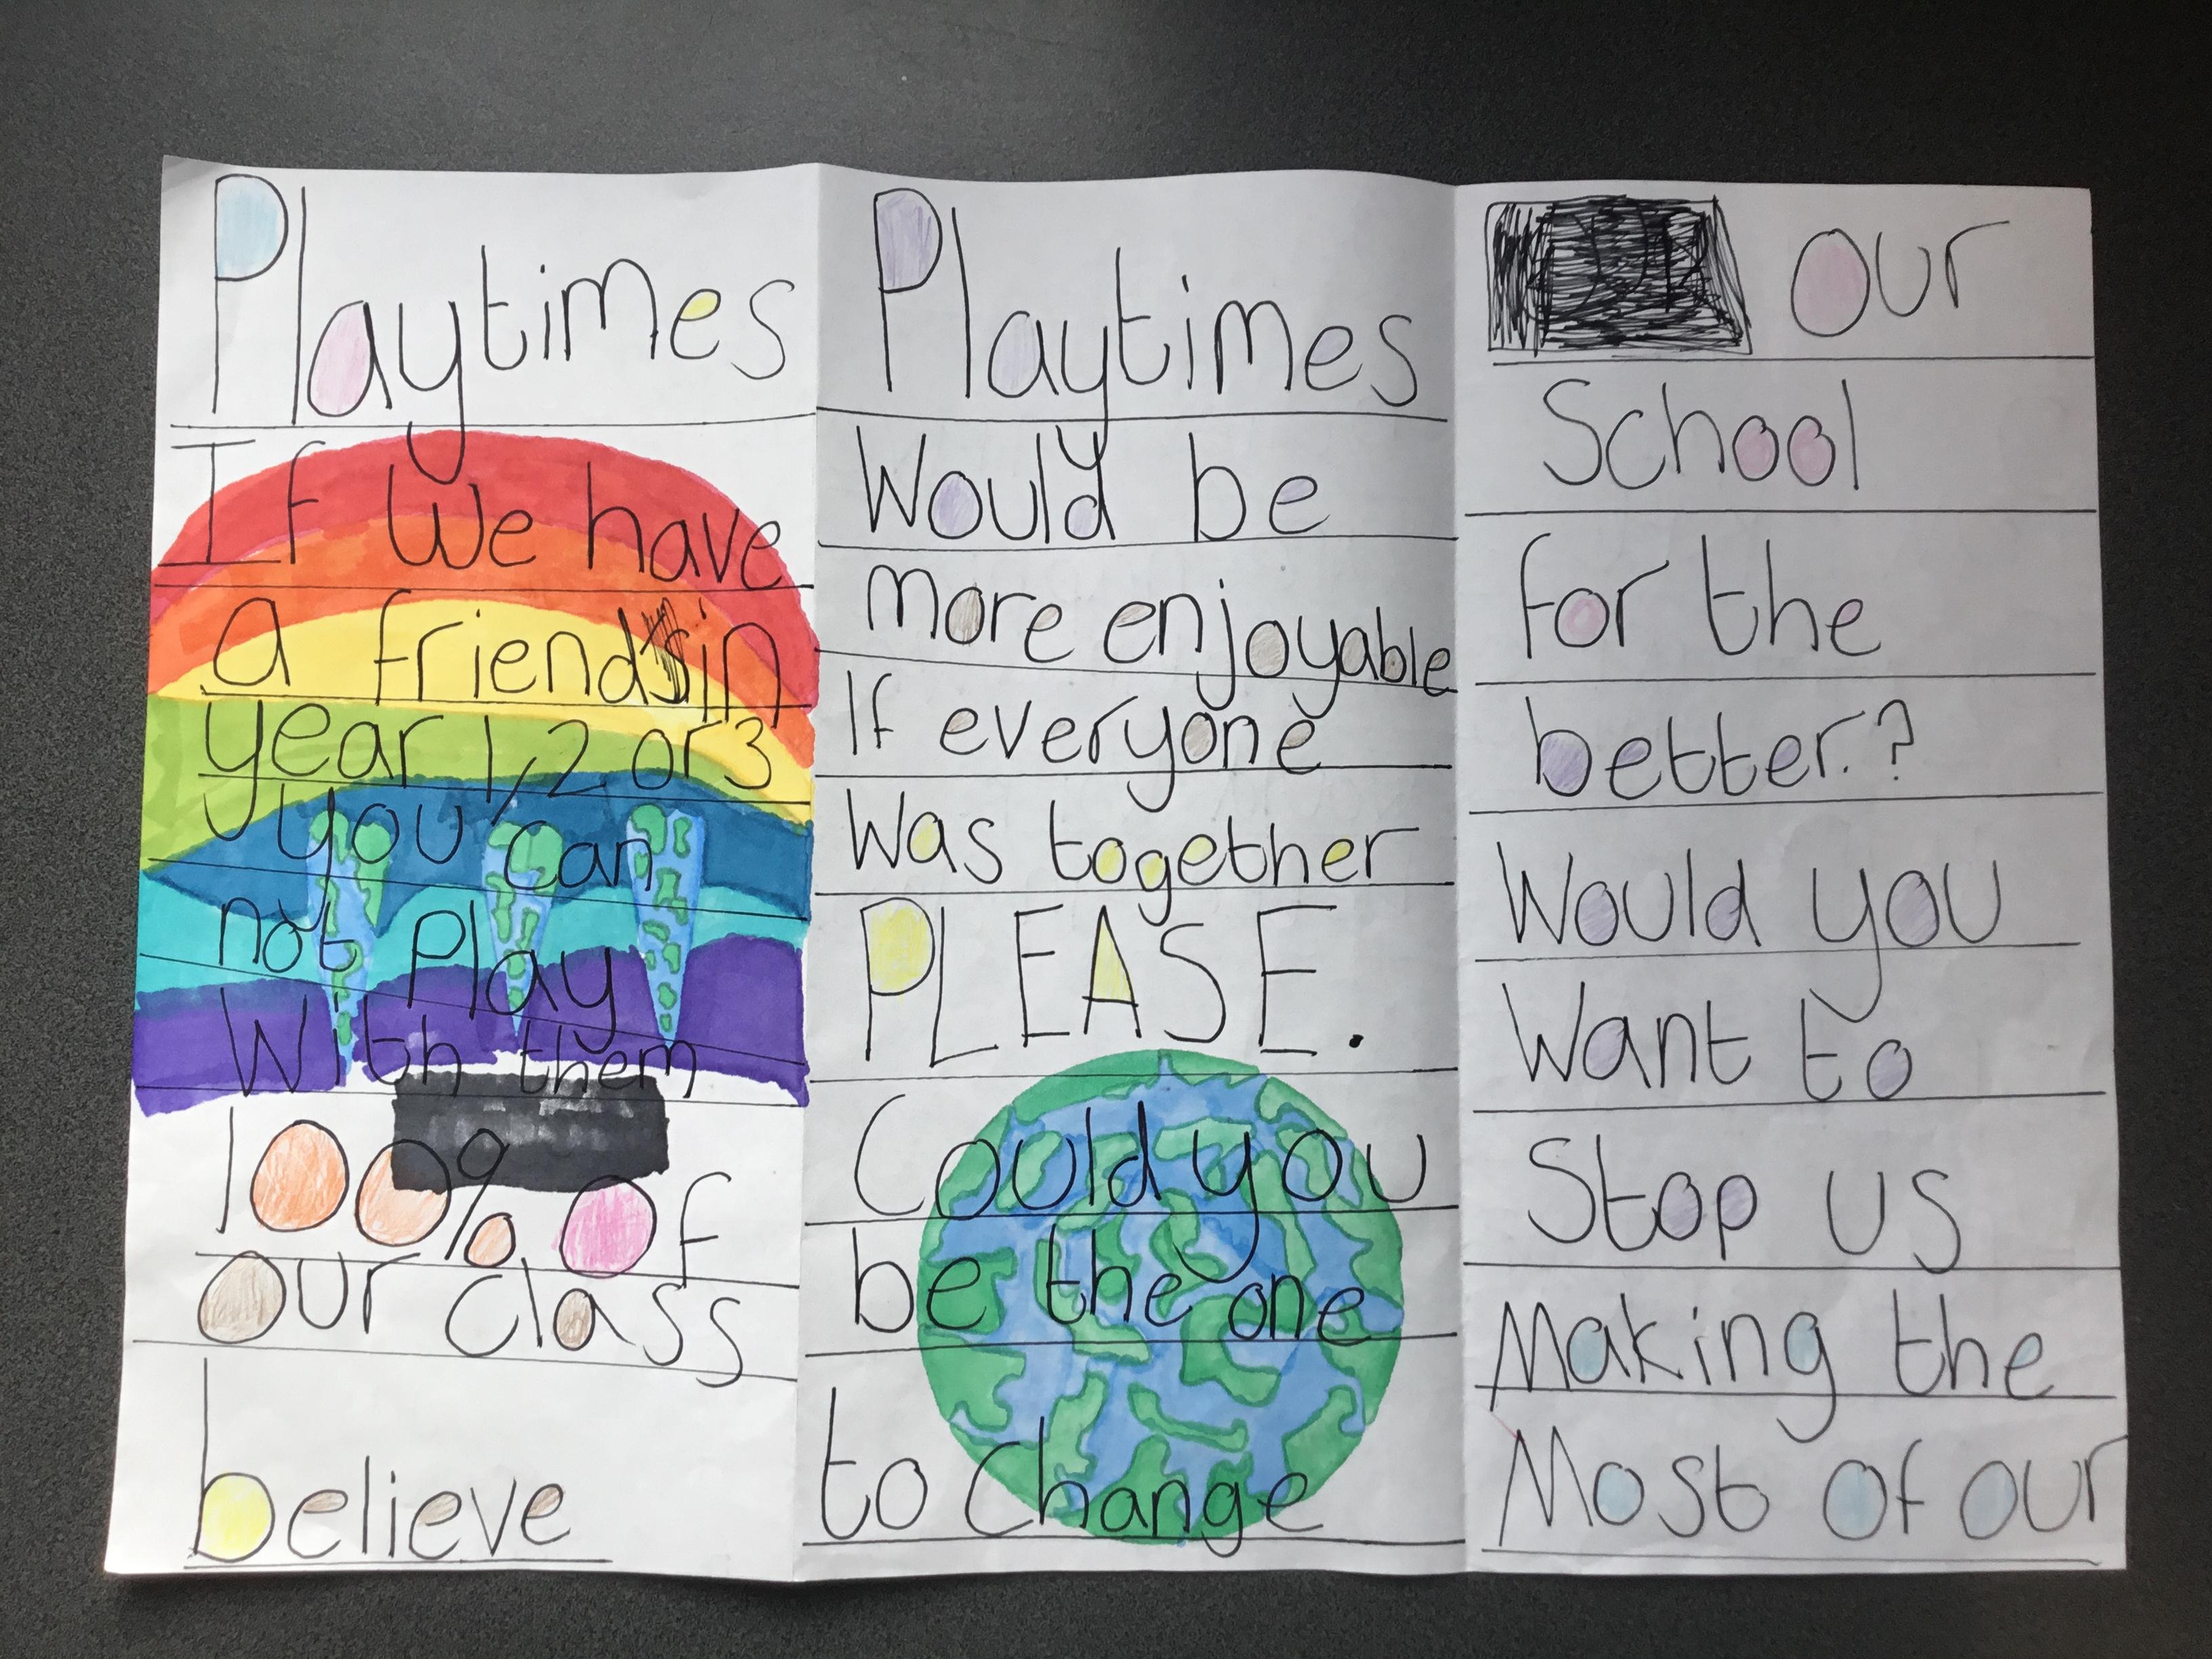 Playtimes
If we have
a friend in
year 1, 2 or 3
you can
not Play
With them
100% of
our class
believe
Playtimes
Would be
more enjoyable
If everyone
Was together
PLEASE.
Could you
be the one
to change
our
School
for the
better.?
Would you
Want to
Stop us
Making the
Most of our